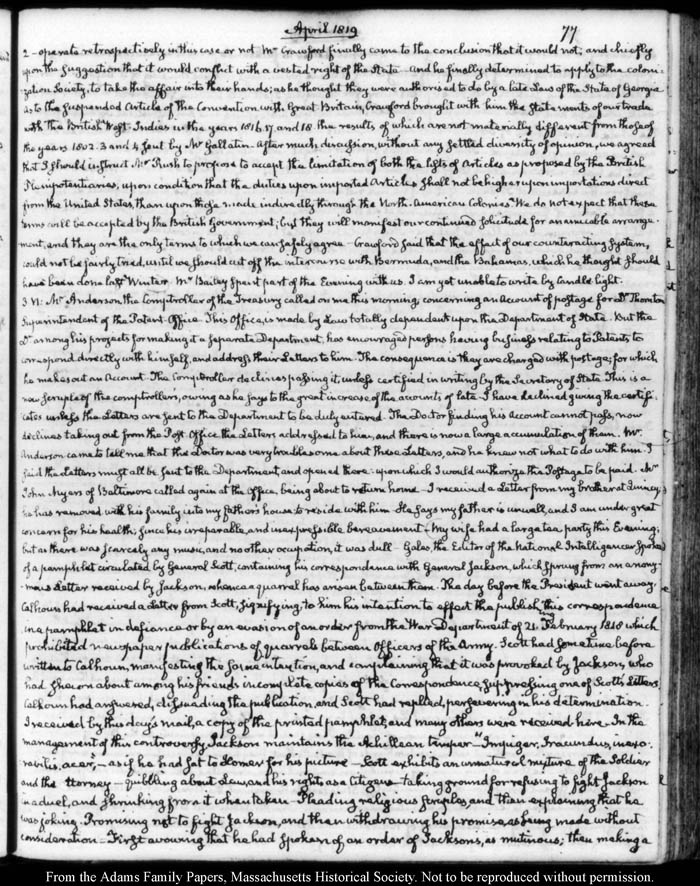 April 1819
77
2 - operate retrospectively in this case or not Mr Crawford finally came to the conclusion that it would not; and chiefly
upon the suggestion that it would conflict with a vested right of the State - and he finally determined to apply to the Coloni-
zation Society, to take the affair into their hands; as he thought they were authorised to do by a late Law of the State of Georgia
As to the suspended Article of the Convention with Great Britain, Crawford brought with him the Statements of our trade
with the British West-Indies in the years 1816. 17. and 18 the results of which are not materially different from those of
the years 1802. 3 and 4 sent by Mr Gallatin. After much discussion, without any settled diversity of opinion, we agreed
that I should instruct Mr Rush to propose to accept the limitation of both the lists of Articles as proposed by the British
Plenipotentiaries, upon condition that the duties upon imported Articles shall not be higher upon importations direct
from the United States, than upon those made indirectly through the North-American Colonies. We do not expect that these
terms will be accepted by the British Government; but they will manifest our continued solicitude for an amicable arrange-
ment, and they are the only terms to which we can safely agree - Crawford said that the effect of our counteracting System,
could not be fairly tried, until we should cut off the intercourse with Bermuda, and the Bahamas, which he thought should
have been done last Winter. Mr Bailey spent part of the Evening with us. I am yet unable to write by Candle light.
3 VI: Mr Anderson, the Comptroller of the Treasury called on me this morning, concerning an Account of postage for Dr Thornton
Superintendent of the Patent Office. This Office, is made by Law totally dependent upon the Department of State. But the
Dr among his projects for making it a separate Department, has encouraged persons having business relating to Patents to
correspond directly with himself, and address their Letters to him. The consequence is they are charged with postage; for which
he makes out an Account. The Comptroller declines passing it, unless certified in writing by the Secretary of State. This is a
new scruple of the comptrollers, owing as he says to the great increase of the accounts of late. I have declined giving the certifi-
cates unless the Letters are sent to the Department to be duly entered. The Doctor finding his Account cannot pass, now
declines taking out from the Post Office the Letters addressed to him, and there is now a large accumulation of them. Mr
Anderson came to tell me that the Doctor was very troublesome about these Letters, and he knew not what to do with him. I
said the Letters must all be sent to the Department, and opened there: upon which I would authorize the Postage to be paid. Mr
John Myers of Baltimore called again at the Office, being about to return home - I received a Letter from my brother at Quincy;
he has removed with his family into my father's house, to reside with him He says my father is unwell, and I am under great
concern for his health, since his irreparable, and inexpressible bereavement - My wife had a large tea party this Evening;
but as there was scarcely any music, and no other occupation, it was dull - Gales, the Editor of the National Intelligencer spoke
of a pamphlet circulated by General Scott, containing his correspondence with General Jackson, which sprung from an anony-
mous Letter received by Jackson, whence a quarrel has arisen between them. The day before the President went away.
Calhoun had received a Letter from Scott, signifying to him his intention to effect the publishing this correspondence
in a pamphlet in defiance or by an evasion of an order from the War Department of 21 February 1818 which
prohibited newspaper publications of quarrels between Officers of the Army. Scott had sometime before
written to Calhoun, manifesting the same intention, and complaining that it was provoked by Jackson, who
had shewn about among his friends incomplete copies of the Correspondence, suppressing one of Scott's Letters.
Calhoun had answered, dissuading the publication, and Scott had replied, persevering in his determination.
I received by this day's mail, a copy of the printed pamphlet, and many others were received here. In the
management of this controversy Jackson maintains the Achillean temper "Impiger, Iracundus, inexo-
rabilis, acer," - as if he had sat to Homer for his picture - Scott exhibits an unnatural mixture of the Soldier
and the Attorney - quibbling about Law, and his rights, as a Citizen - taking ground for refusing to fight Jackson
in a duel, and shrinking from it when taken - Pleading religious scruples, and then explaining that he
was joking. Promising not to fight Jackson, and then withdrawing his promise, as being made without
consideration - First avowing that he had spoken of an order of Jacksons, as mutinous; then making a
From the Adams Family Papers, Massachusetts Historical Society. Not to be reproduced without permission.